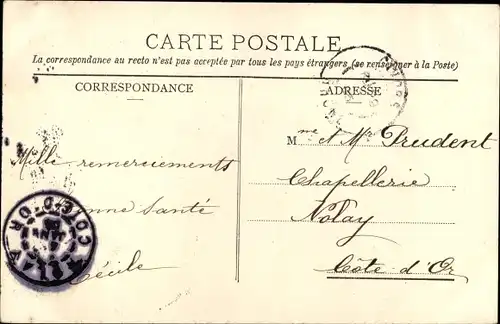 CARTE POSTALE
La correspondance au recto n'est pas acceptée par tous les pays étrangers (se renseigner à la Poste)
CORRESPONDANCE
Mille remerciements
Bonne Santé
Cécile
ADRESSE
Mme et Mr Prudent
Chapellerie
Nolay
Côte d'Or